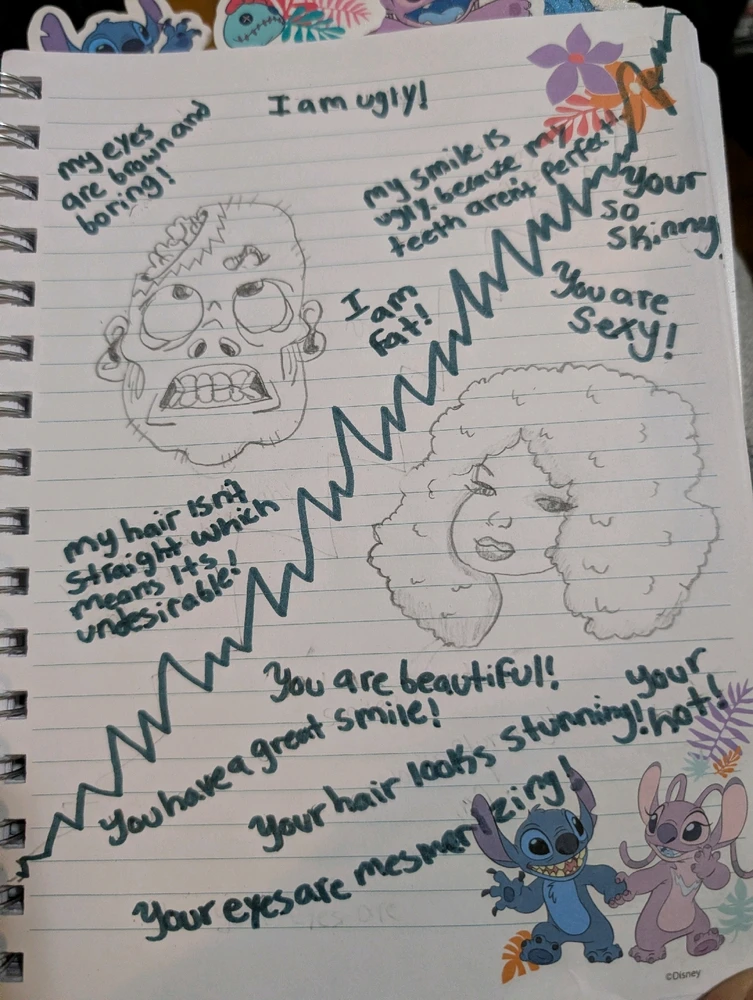 I am ugly!
my eyes
are brown and
boring!
my smile is
ugly because my
teeth aren't perfect!
your
so
skinny
I am
fat!
You are
sexy!
my hair isn't
straight which
means its
undesirable!
You are beautiful!
You have a great smile!
your
hot!
Your hair looks stunning!
Your eyes are mesmorizing!
©Disney